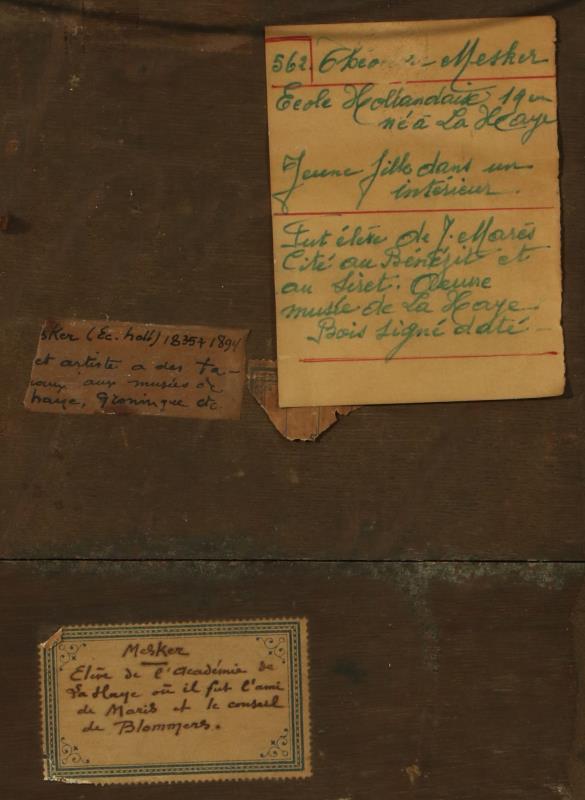 562. Mesker
Ecole Hollandaise 19e
né à La Haye
Jeune fille dans un
intérieur.
Fut élève de J. Marès
Cité au Bénézit et
au Siret. Oeuvre
musée de La Haye
Bois signé daté -
sker (Ec. holl) 1835+1894
et artiste a des ta-
eaux aux musées de
haye, Groningue etc
Mesker
Elève de l'Académie de
La Haye où il fut l'ami
de Maris et le conseil
de Blommers.